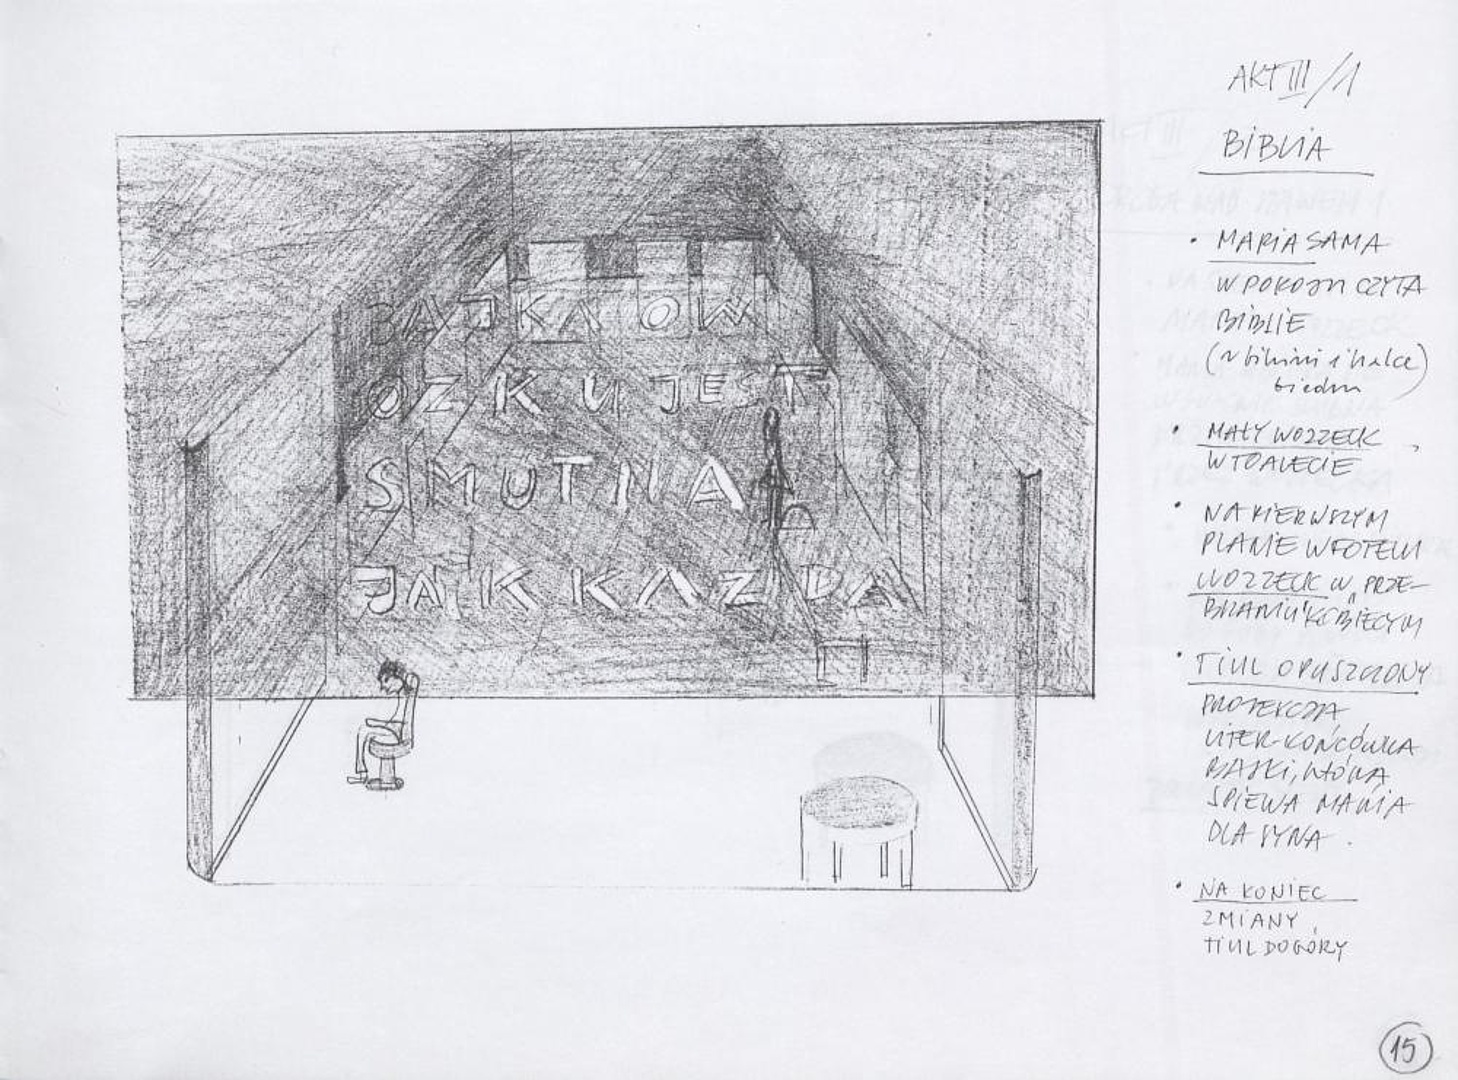 BAJKA O W
OZKU JEST
SMUTNA
JAK KAZDA
AKT III/1
BIBLIA
• MARIA SAMA
W POKOJU CZYTA
BIBLIE
(w bikini i halce)
• MAŁY WOZZECK
W TOALECIE
• NA PIERWSZYM
PLANIE W FOTELU
WOZZECK W „PRZE-
BRANIU" KOBIECYM
• TIUL OPUSZCZONY
PROJEKCJA
LITER-KOŃCÓWKA
BAJKI, KTÓRĄ
ŚPIEWA MARIA
DLA SYNA.
• NA KONIEC
ZMIANY,
TIUL DO GÓRY
15